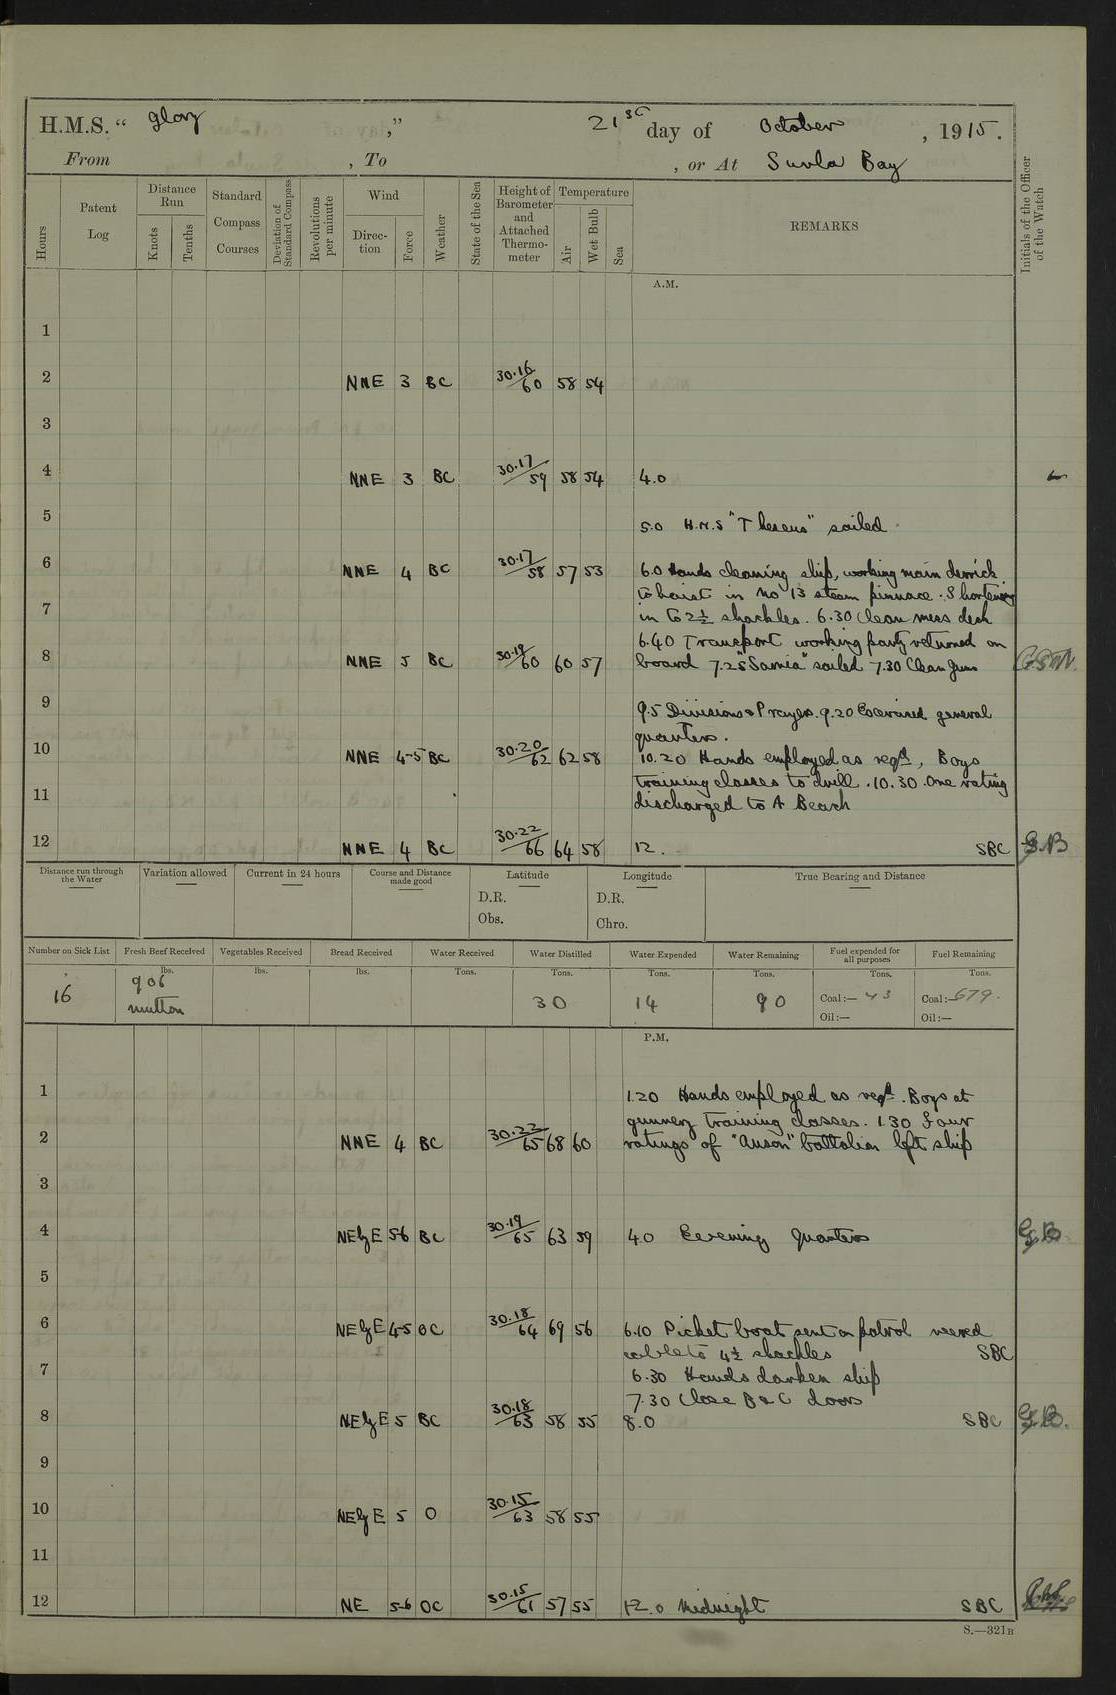 H.M.S. “ Glory ,” 21st day of October , 1915.
From , To , or At Suvla Bay
Hours
Patent Log
Distance Run
Knots
Tenths
Standard Compass Courses
Deviation of Standard Compass
Revolutions per minute
Wind
Direc-tion
Force
Weather
State of the Sea
Height of Barometer and Attached Thermo-meter
Temperature
Air
Wet Bulb
Sea
REMARKS
Initials of the Officer of the Watch
A.M.
1
2 NNE 3 BC 30.16/60 58 54
3
4 NNE 3 BC 30.17/59 58 54 4.0
5 5.0 H.M.S "Theseus" sailed.
6 NNE 4 BC 30.17/58 57 53 6.0 Hands cleaning ship, working main derrick
to hoist in No 13 steam pinnace. Shortening
7 in to 2½ shackles. 6.30 Clean mess deck
6.40 Transport working party returned on
8 NNE 5 BC 30.19/60 60 57 board 7.25 "Sarnia" sailed 7.30 Clean Guns
9 9.5 Divisions & Prayers. 9.20 Exercised general
quarters.
10 NNE 4-5 BC 30.20/62 62 58 10.20 Hands employed as reqd, Boys
training classes to drill. 10.30 One rating
11 discharged to A Beach
12 NNE 4 BC 30.22/66 64 58 12. SBC G.B
Distance run through the Water
Variation allowed
Current in 24 hours
Course and Distance made good
Latitude
D.R.
Obs.
Longitude
D.R.
Chro.
True Bearing and Distance
Number on Sick List Fresh Beef Received Vegetables Received Bread Received Water Received Water Distilled Water Expended Water Remaining Fuel expended for all purposes Fuel Remaining
lbs. lbs. lbs. Tons. Tons. Tons. Tons. Tons. Tons.
16 906 mutton 30 14 90 Coal:— 43 Coal:— 679.
Oil:— Oil:—
P.M.
1 1.20 Hands employed as reqd. Boys at
gunnery training classes. 1.30 Four
2 NNE 4 BC 30.22/65 68 60 ratings of "Anson" battalion left ship
3
4 NEbyE 5-6 BC 30.19/65 63 59 4.0 Evening Quarters G.B.
5
6 NEbyE 4-5 OC 30.18/64 69 56 6.10 Picket boat sent on patrol veered
cable to 4½ shackles SBC
7 6.30 Hands darken ship
7.30 Close B & C doors
8 NEbyE 5 BC 30.18/63 58 55 8.0 SBC G.B.
9
10 NEbyE 5 O 30.15/63 58 55
11
12 NE 5-6 OC 30.15/61 57 55 12.0 Midnight SBC
S.—321B